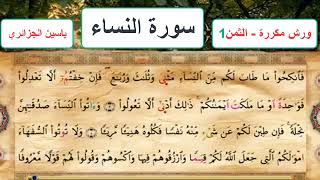 ورش مكررة - الثمن1
سورة النساء
ياسين الجزائري
فَانكِحُوا مَا طَابَ لَكُم مِّنَ اَلنِّسَآءِ مَثْنۭىٰ وَثُلَٰثَ وَرُبَٰعَۖ فَإِنْ خِفْتُمُۥٓ أَلَّا تَعْدِلُوا
فَوَٰحِدَةً اَوْ مَا مَلَكَتَ اَيْمَٰنُكُمْۖ ذَٰلِكَ أَدْنَىٰٓ أَلَّا تَعُولُوا وَءَاتُوا اُلنِّسَآءَ صَدُقَٰتِهِنَّ
نِحْلَةًۖ فَإِن طِبْنَ لَكُمْ عَن شَےْءٍ مِّنْهُ نَفْساً فَكُلُوهُ هَنِيٓـٔاً مَّرِيٓـٔاً وَلَا تُوتُوا اُلسُّفَهَآءَ
امْوَٰلَكُمُ اُلتِے جَعَلَ اَللَّهُ لَكُمْ قِيَماً وَارْزُقُوهُمْ فِيهَا وَاكْسُوهُمْ وَقُولُوا لَهُمْ قَوْلاً مَّعْرُوفاً